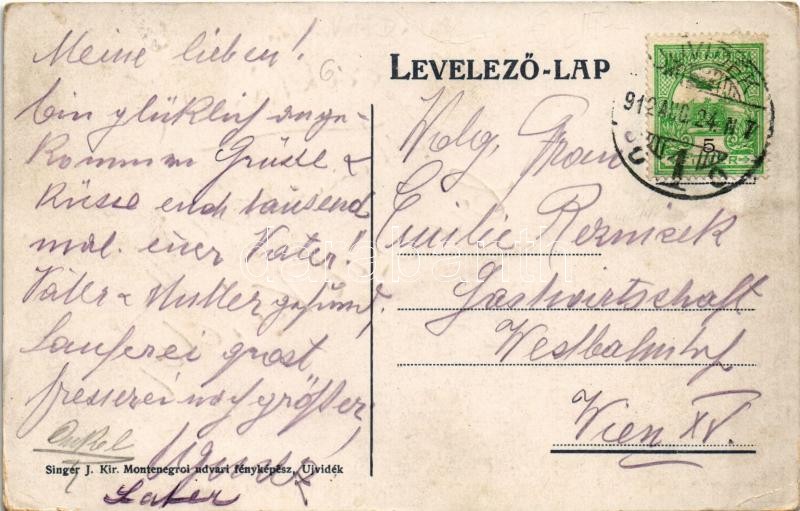 Meine lieben!
bin glücklich ange-
kommen Grüsse &
Küsse euch tausend
mal. euer Vater!
Vater & Mutter gesund.
Sauferei gross
fresserei noch größer
Onkel
Singer J. Kir. Montenegroi udvari fényképész, Ujvidék
6.
LEVELEZŐ-LAP
912 AUG. 24. N. 7
5
Wolg. Frau
Emilie Rezmicek
Gastwirtschaft
Westbahnhof
Wien XV.
darabanth